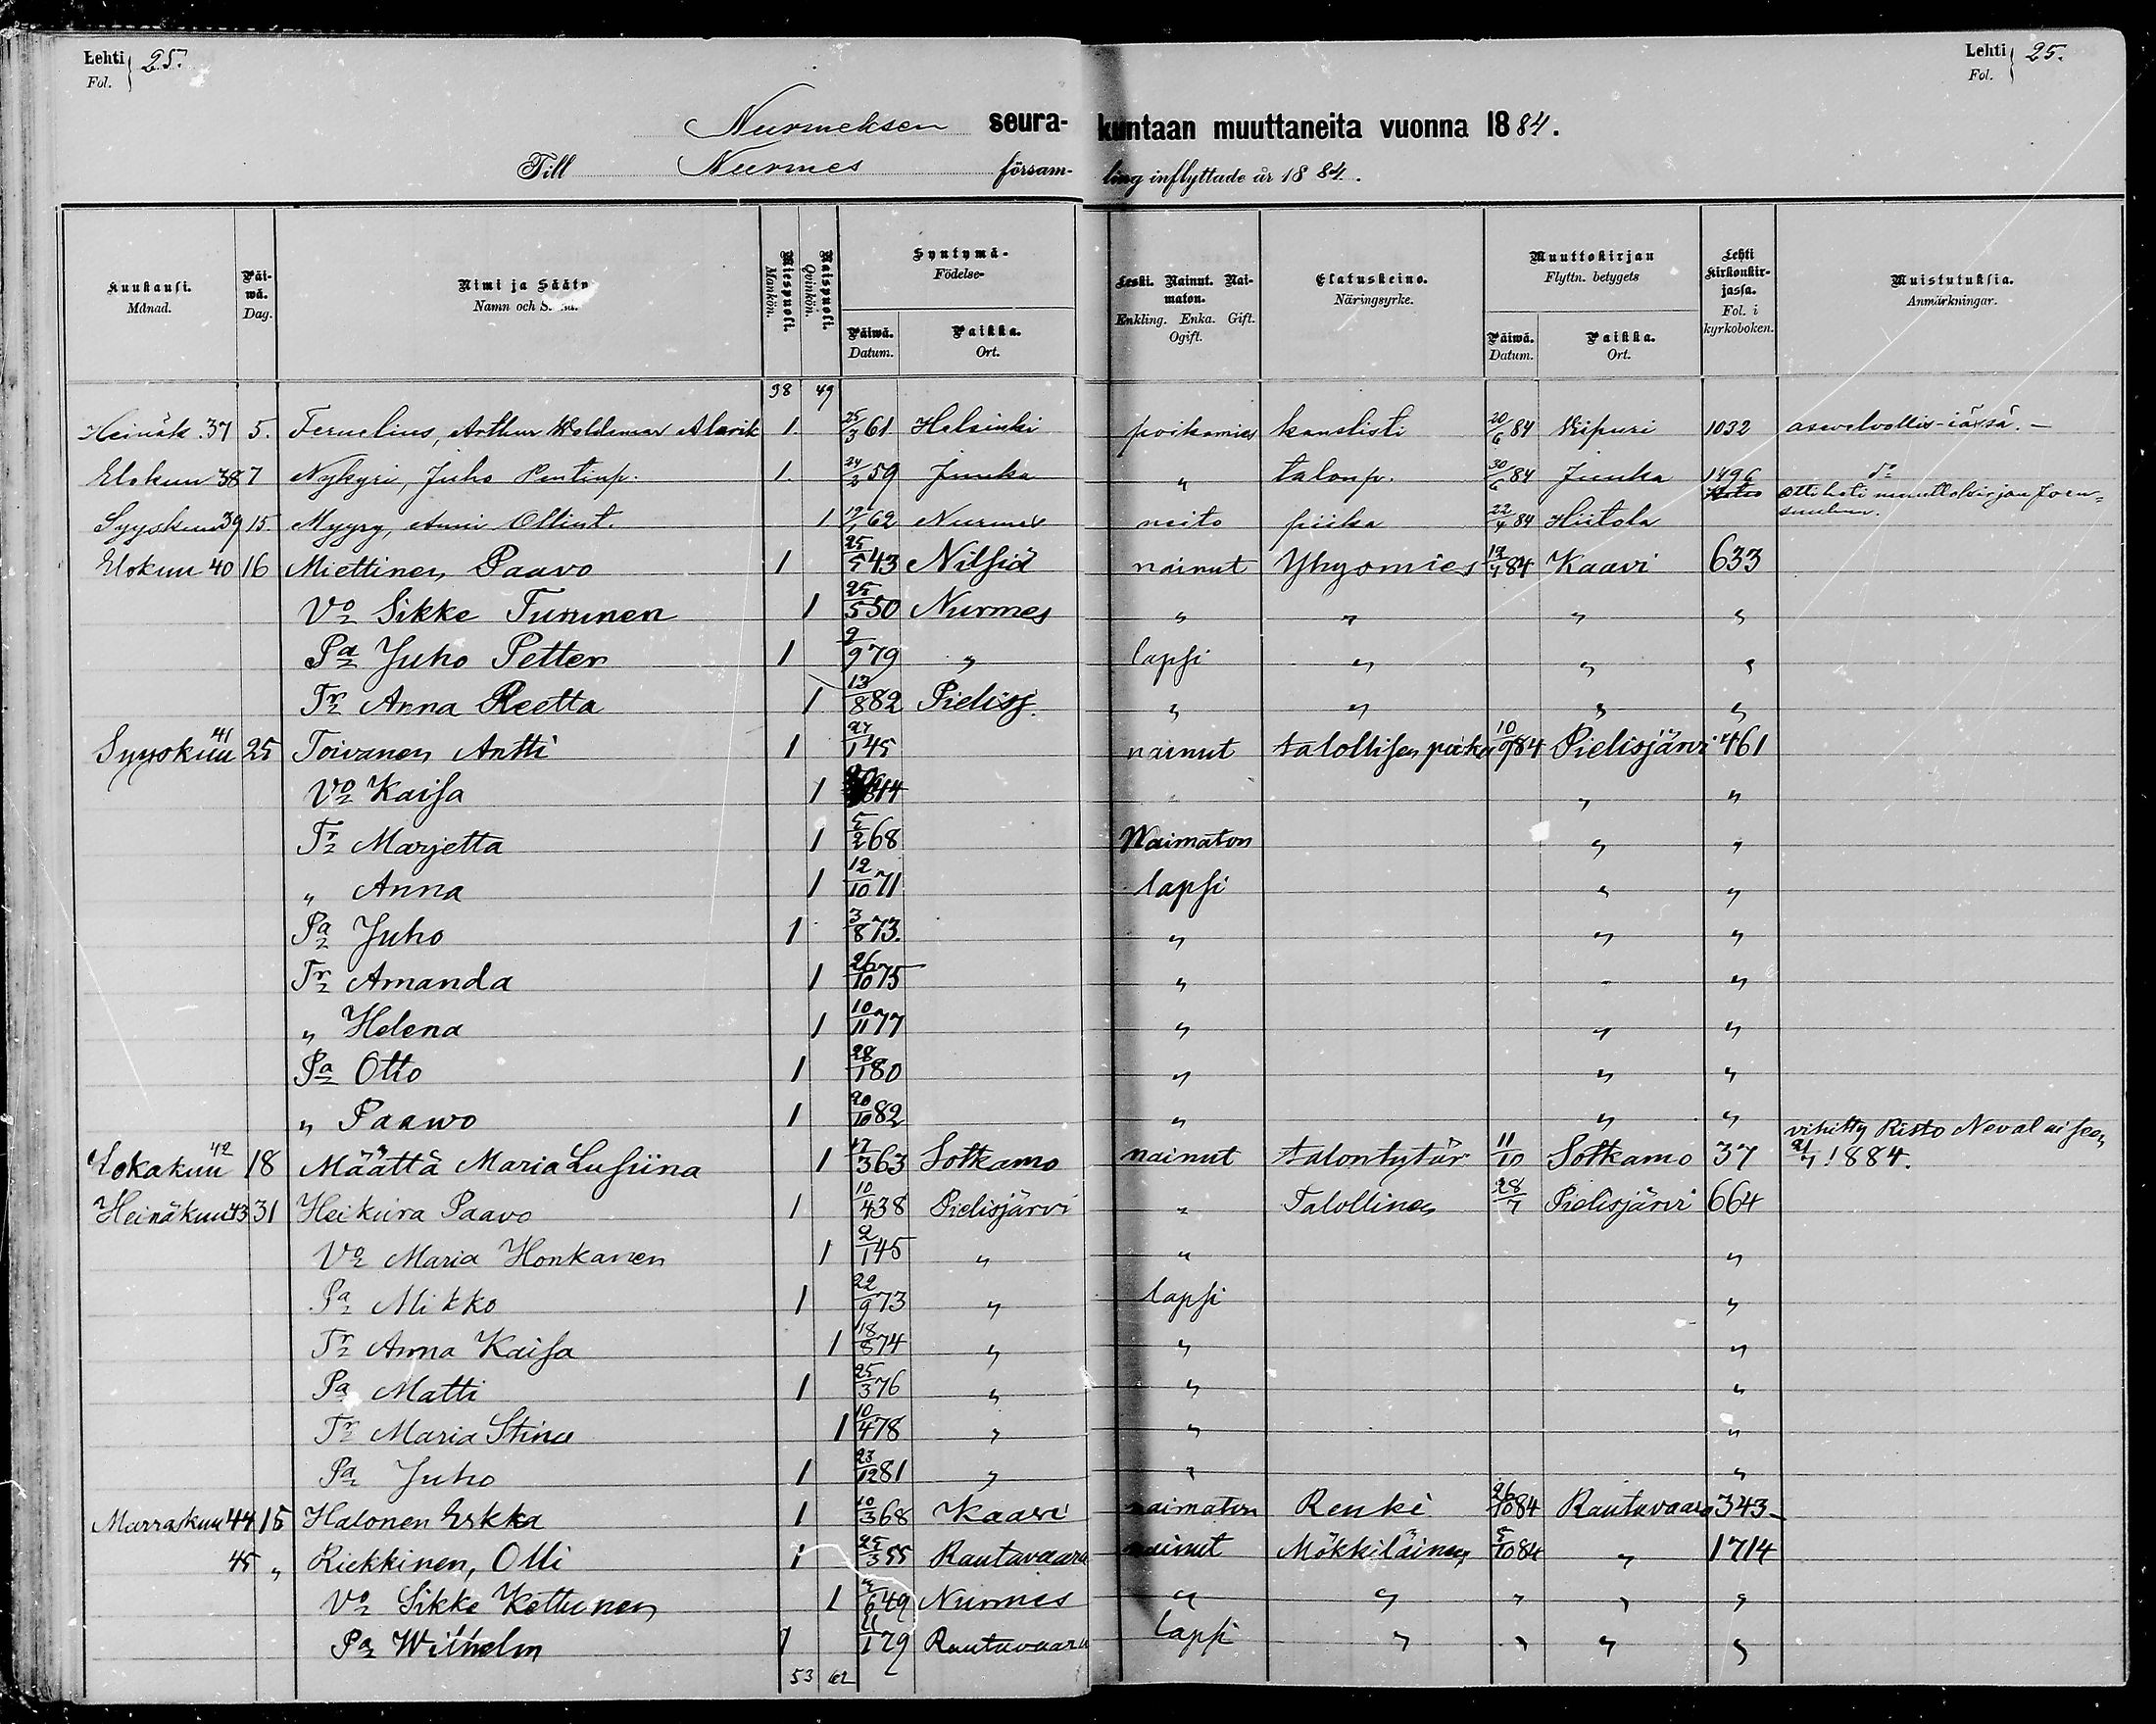 Lehti 25.
Fol.
Lehti 25.
Fol.
Nurmeksen seura- kuntaan muuttaneita vuonna 1884.
Till Nurmes försam- ling inflyttade år 1884.
Kuukausi. Månad. | Päiwä. Dag. | Nimi ja Sääty Namn och | Miespuoli. Mankön. | Naispuoli. Quinkön. | Syntymä- Födelse- Päiwä. Datum. | Paikka. Ort. | Leski. Nainut. Naimaton. Enkling. Enka. Gift. Ogift. | Elatuskeino. Näringsyrke. | Muuttokirjan Flyttn. betygets Päiwä. Datum. | Paikka. Ort. | Lehti Kirkonkirjassa. Fol. i kyrkoboken. | Muistutuksia. Anmärkningar.
38 49
Heinäk. 37 5. Fernelius, Arthur Woldemar Alarik 1. 25/3 61 Helsinki poikamies kanslisti 20/6 84 Wiipuri 1032 asevelvollis-iässä. –
Elokuu 38 7 Nykyri, Juho Pentinp. 1. 24/2 59 Juuka " talonp. 30/6 84 Juuka 1496 do
Syyskuu 39 15. Myyry, Anni Ollint. 1 62 Nurmes neito piika 22/4 84 Hiitola otti heti muuttokirjan Joensuuhun.
Elokuu 40 16 Miettinen Paavo 1 25/5 43 Nilsiä nainut Yhyomies 12/4 84 Kaavi 633
Vo Sikke Turunen 1 25/5 50 Nurmes " " " "
Pa Juho Petter 1 9/9 79 " lapsi " " "
Tr Anna Reetta 1 13/8 82 Pielisj. " " " "
Syyskuu 41 25 Toivanen Antti 1 27/1 45 nainut talollisen poika 10/9 84 Pielisjärvi 461
Vo Kaisa 1 44 " "
Tr Marjetta 1 5/2 68 Naimaton " "
" Anna 1 12/10 71 lapsi " "
Pa Juho 1 3/8 73. " " "
Tr Amanda 1 26/10 75 " " "
" Helena 1 10/11 77 " " "
Pa Otto 1 28/1 80 " " "
" Paawo 1 20/10 82 " " "
Lokakuu 42 18 Määttä Maria Lusiina 1 17/3 63 Sotkamo nainut talontytär 11/10 Sotkamo 37 vihitty Risto Nevalaiseen 21/7 1884.
Heinäkuu 43 31 Heikura Paavo 1 10/4 38 Pielisjärvi " Talollinen 28/7 Pielisjärvi 664
Vo Maria Honkanen 1 2/1 45 " " "
Pa Mikko 1 22/9 73 " lapsi "
Tr Anna Kaisa 1 18/8 74 " " "
Pa Matti 1 25/3 76 " " "
Tr Maria Stina 1 10/4 78 " " "
Pa Juho 1 23/12 81 " " "
Marraskuu 44 15 Halonen Erkka 1 10/3 68 Kaavi naimaton Renki 26/10 84 Rautavaara 343 –
45 " Riekkinen, Olli 1 25/3 55 Rautavaara nainut Mökkiläinen 5/10 84 " 1714
Vo Sikke Kettunen 1 6 49 Nurmes " " " " "
Pa Wilhelm 1 11/1 79 Rautavaara lapsi " " " "
53 62